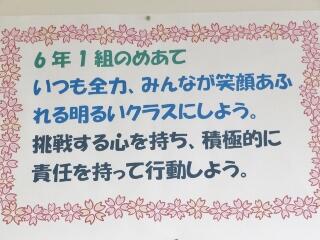 6年1組のめあて
いつも全力、みんなが笑顔あふ
れる明るいクラスにしよう。
挑戦する心を持ち、積極的に
責任を持って行動しよう。